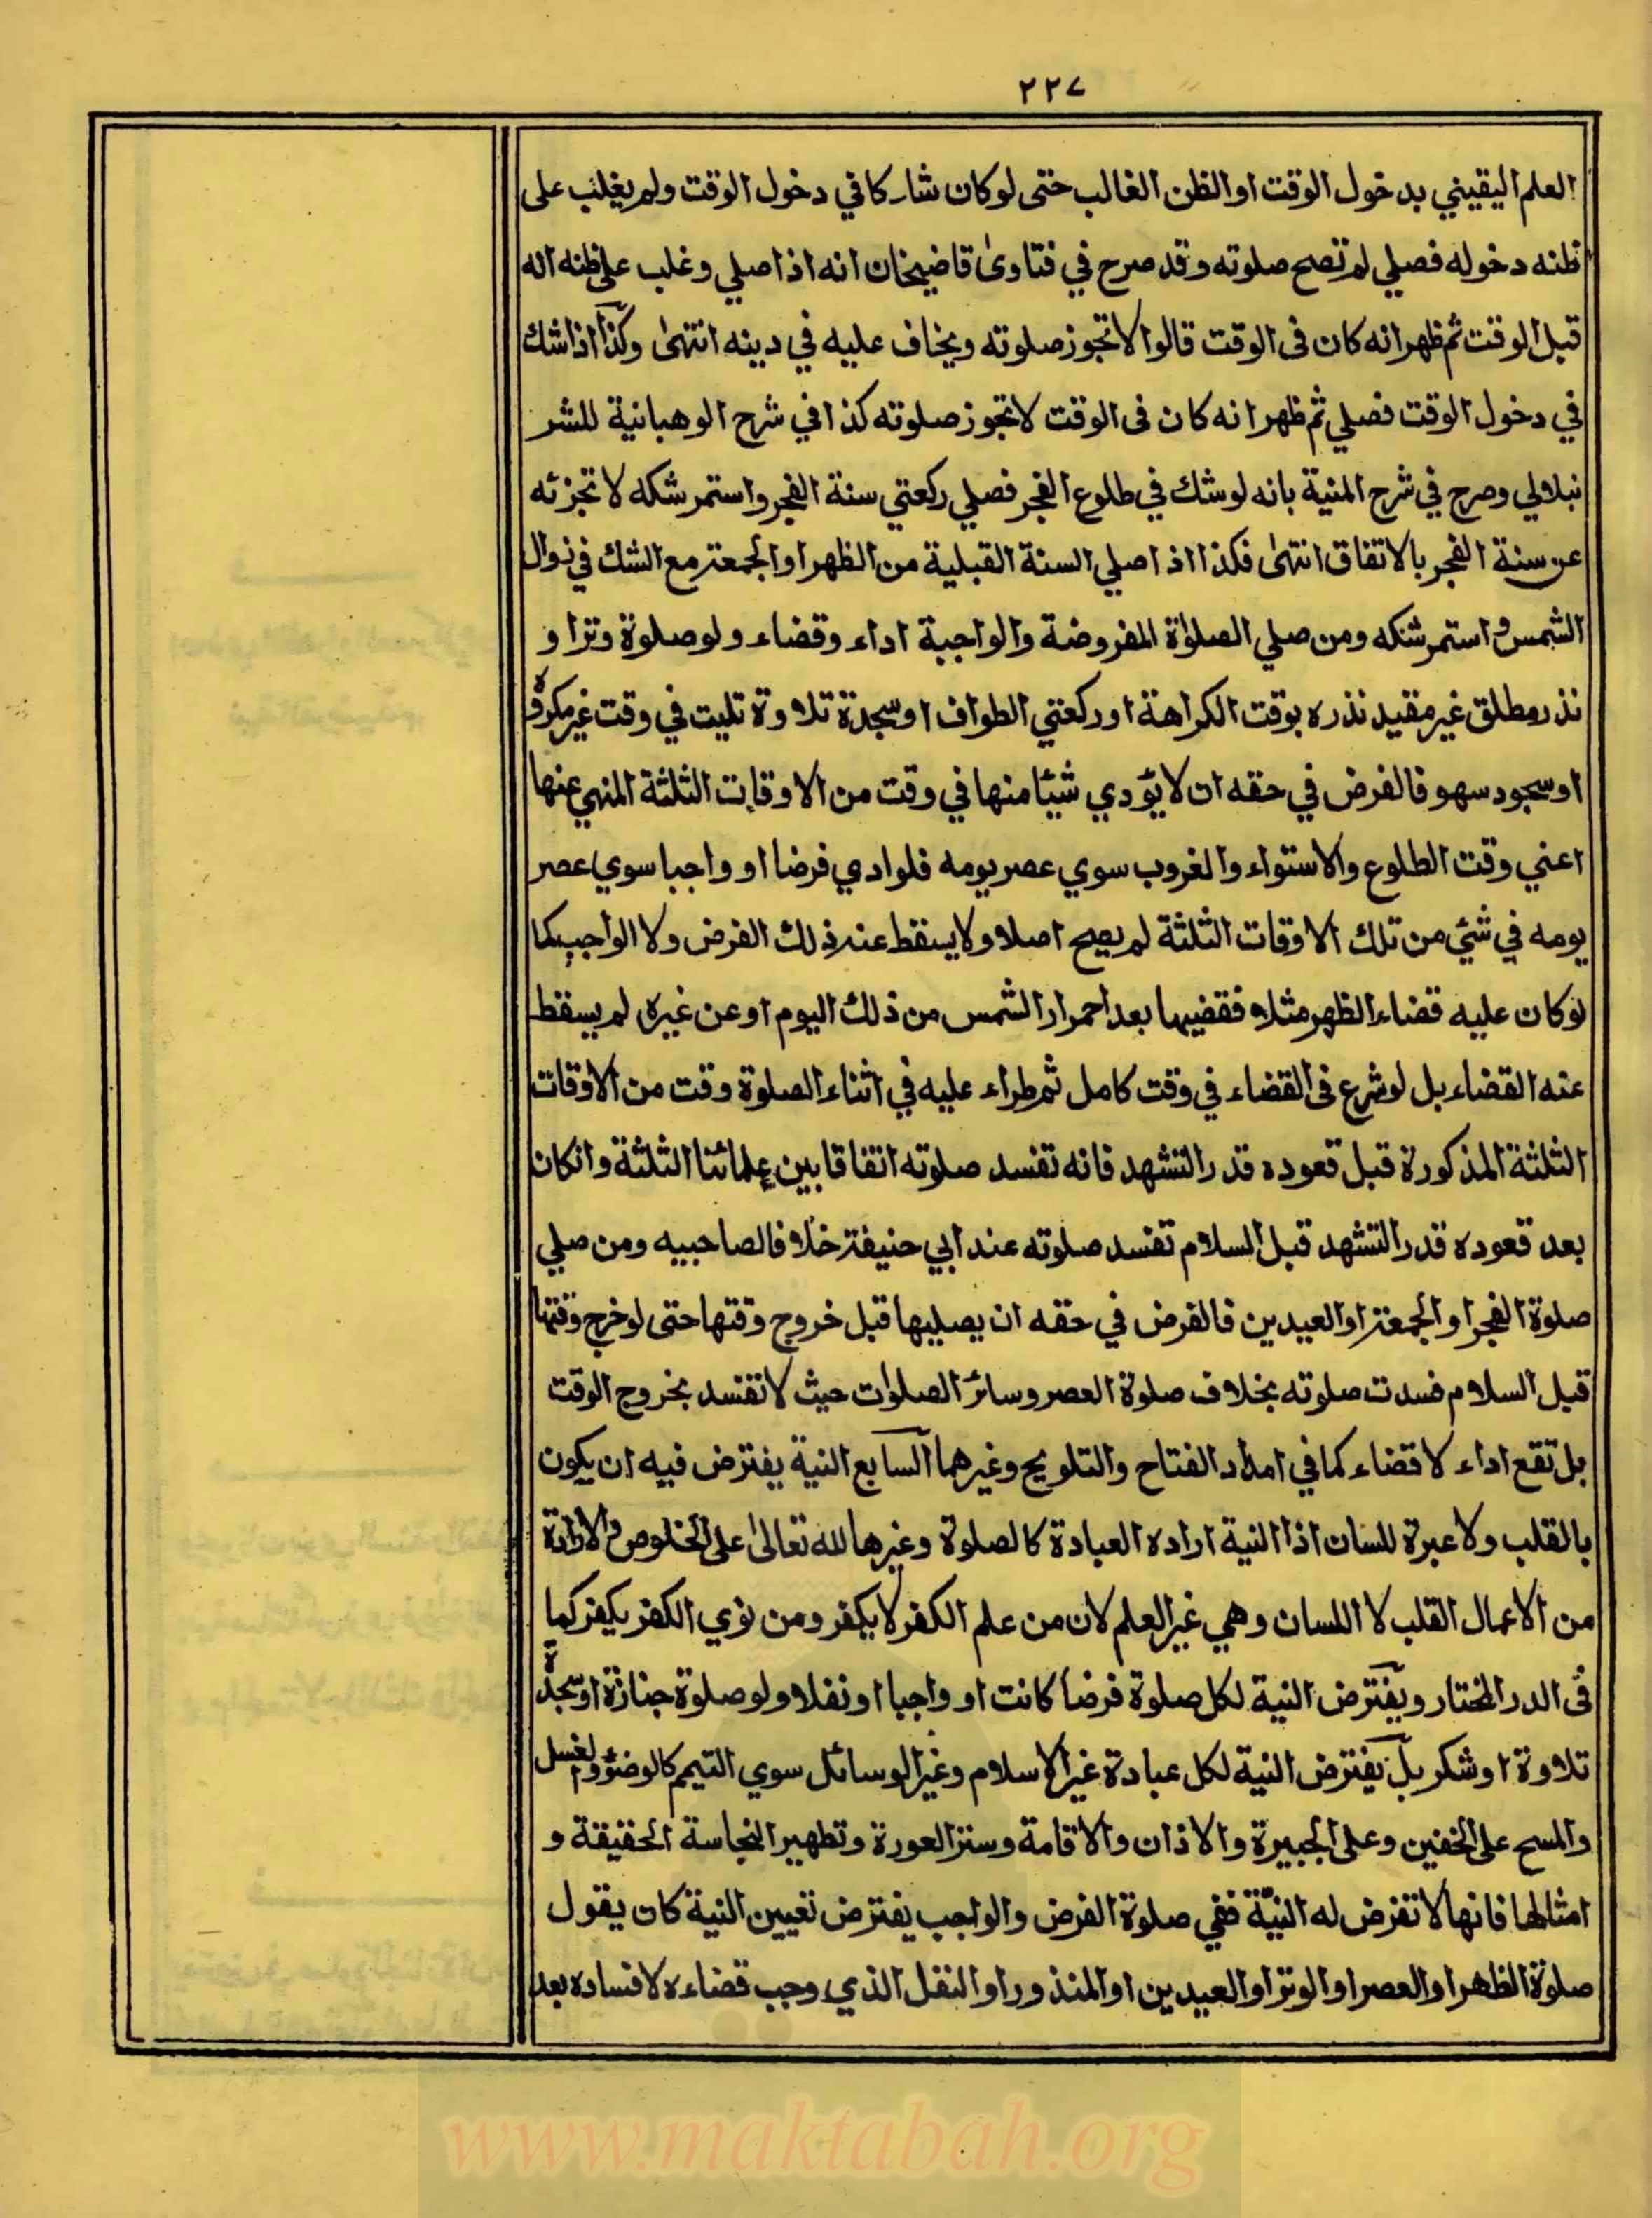 ٢٢٧
العلم اليقيني بدخول الوقت او الظن الغالب حتى لو كان شاركا في دخول الوقت ولم يغلب على
ظنه دخوله فصلي لم تصح صلوته وقد صرح في فتاوى قاضيخان انه اذا صلي وغلب على ظنه انه
قبل الوقت ثم ظهر انه كان فى الوقت قالوا لا تجوز صلوته ويخاف عليه في دينه انتهى وكذا اذا شك
في دخول الوقت فصلي ثم ظهر انه كان فى الوقت لا تجوز صلوته كذا في شرح الوهبانية للشر
نبلالي وصرح في شرح المنية بانه لو شك في طلوع الفجر فصلي ركعتي سنة الفجر واستمر شكه لا تجزئه
عن سنة الفجر بالاتفاق انتهى فكذا اذا صلي السنة القبلية من الظهر او الجمعة مع الشك في زوال
الشمس واستمر شكه ومن صلي الصلوٰة المفروضة والواجبة اداء وقضاء ولو صلوة وترا و
نذر مطلق غير مقيد نذره بوقت الكراهة او ركعتي الطواف او سجدة تلاوة تليت في وقت غير مكروه
او سجود سهو فالفرض في حقه ان لا يؤدي شيئا منها في وقت من الاوقات الثلثة المنهي عنها
اعني وقت الطلوع والاستواء والغروب سوي عصر يومه فلو ادي فرضا او واجبا سوي عصر
يومه في شئ من تلك الاوقات الثلثة لم يصح اصلا ولا يسقط عنه ذلك الفرض ولا الواجب كما
لو كان عليه قضاء الظهر مثلا فقضيها بعد احمرار الشمس من ذلك اليوم او عن غيره لم يسقط
عنه القضاء بل لو شرع فى القضاء في وقت كامل ثم طراء عليه في اثناء الصلوة وقت من الاوقات
الثلثة المذكورة قبل قعوده قدر التشهد فانه تفسد صلوته اتفاقا بين علمائنا الثلثة وانكان
بعد قعوده قدر التشهد قبل السلام تفسد صلوته عند ابي حنيفة خلافا لصاحبيه ومن صلي
صلوة الفجر او الجمعة او العيدين فالفرض في حقه ان يصليها قبل خروج وقتها حتى لو خرج وقتها
قبل السلام فسدت صلوته بخلاف صلوة العصر وسائر الصلوات حيث لا تفسد بخروج الوقت
بل تقع اداء لا قضاء كما في امداد الفتاح والتلويح وغيرهما السابع النية يفترض فيه ان يكون
بالقلب ولا عبرة للسان اذا النية اراده العبادة كالصلوة وغيرها لله تعالى على الخلوص والارادة
من الاعمال القلب لا اللسان وهي غير العلم لان من علم الكفر لا يكفر ومن نوي الكفر يكفر كما
فى الدر المختار ويفترض النية لكل صلوة فرضا كانت او واجبا او نفلا ولو صلوة جنازة او سجدة
تلاوة او شكر بل يفترض النية لكل عبادة غير الاسلام وغير الوسائل سوي التيمم كالوضؤ والغسل
والمسح على الخفين وعلى الجبيرة والاذان والاقامة وستر العورة وتطهير النجاسة الحقيقة و
امثالها فانها لا تفرض له النيّة ففي صلوة الفرض والواجب يفترض تعيين النية كان يقول
صلوة الظهر او العصر او الوتر او العيدين او المنذور او النفل الذي وجب قضاءه لافساده بعد
www.maktabah.org